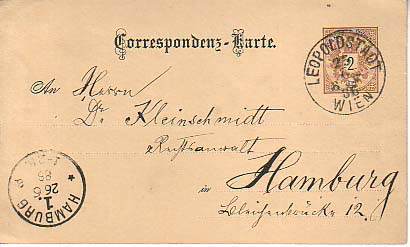 Correspondenz-Karte.
LEOPOLDSTADT
WIEN
2
An Herrn
Dr. Kleinschmidt
Rechtsanwalt
in Hamburg
Bleichenbrücke 12.
HAMBURG
1
26 6
85